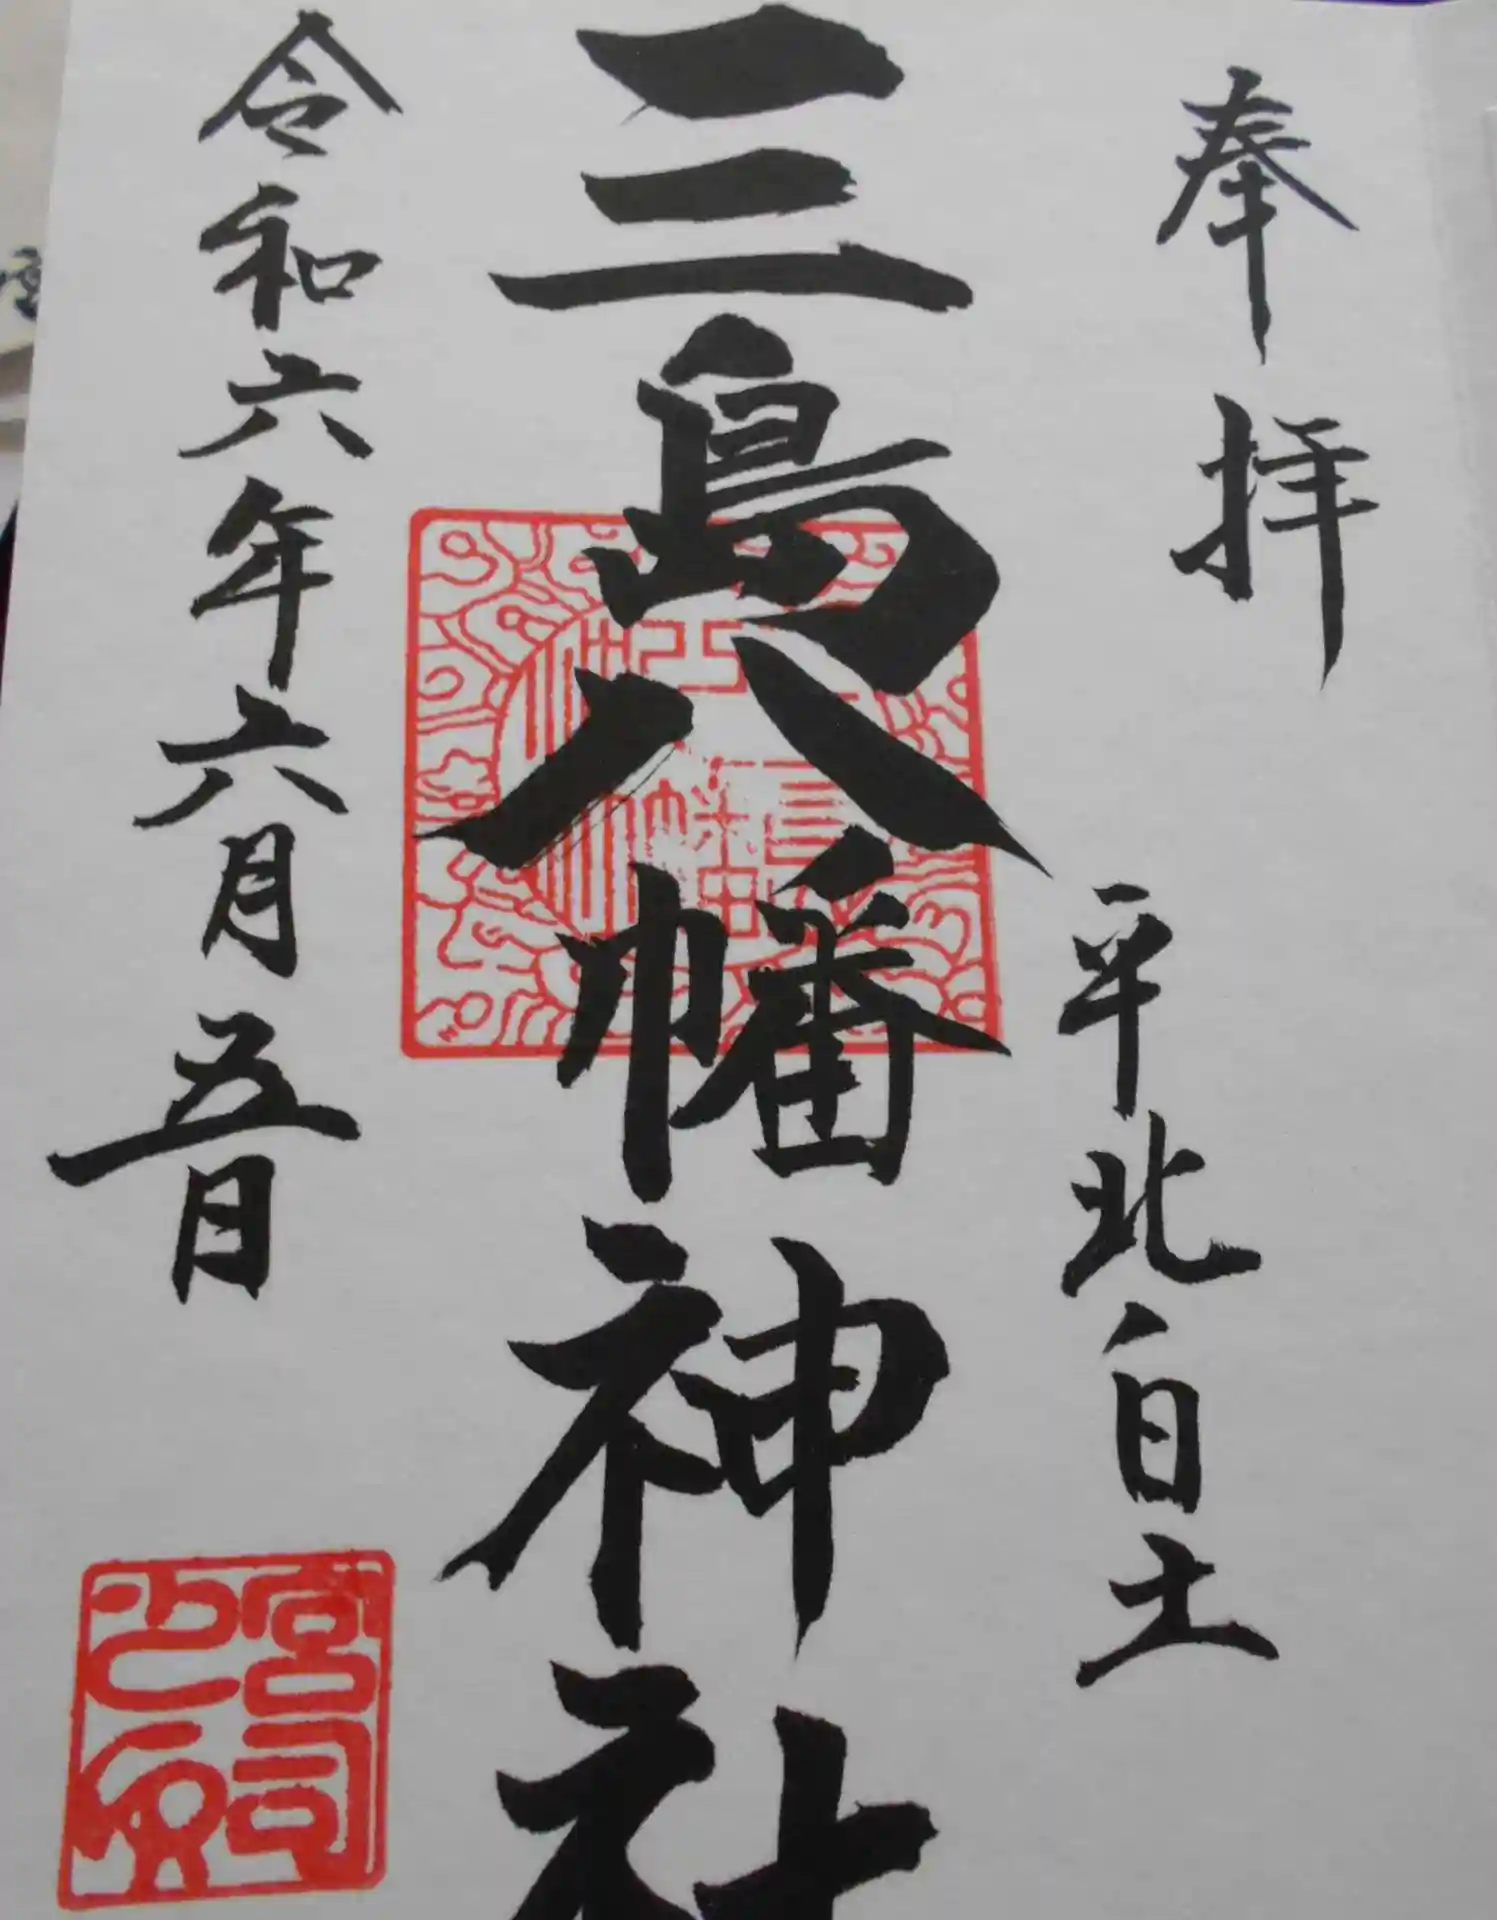 奉拝
平北白土
三島八幡神社
令和六年六月五日
宮司之印